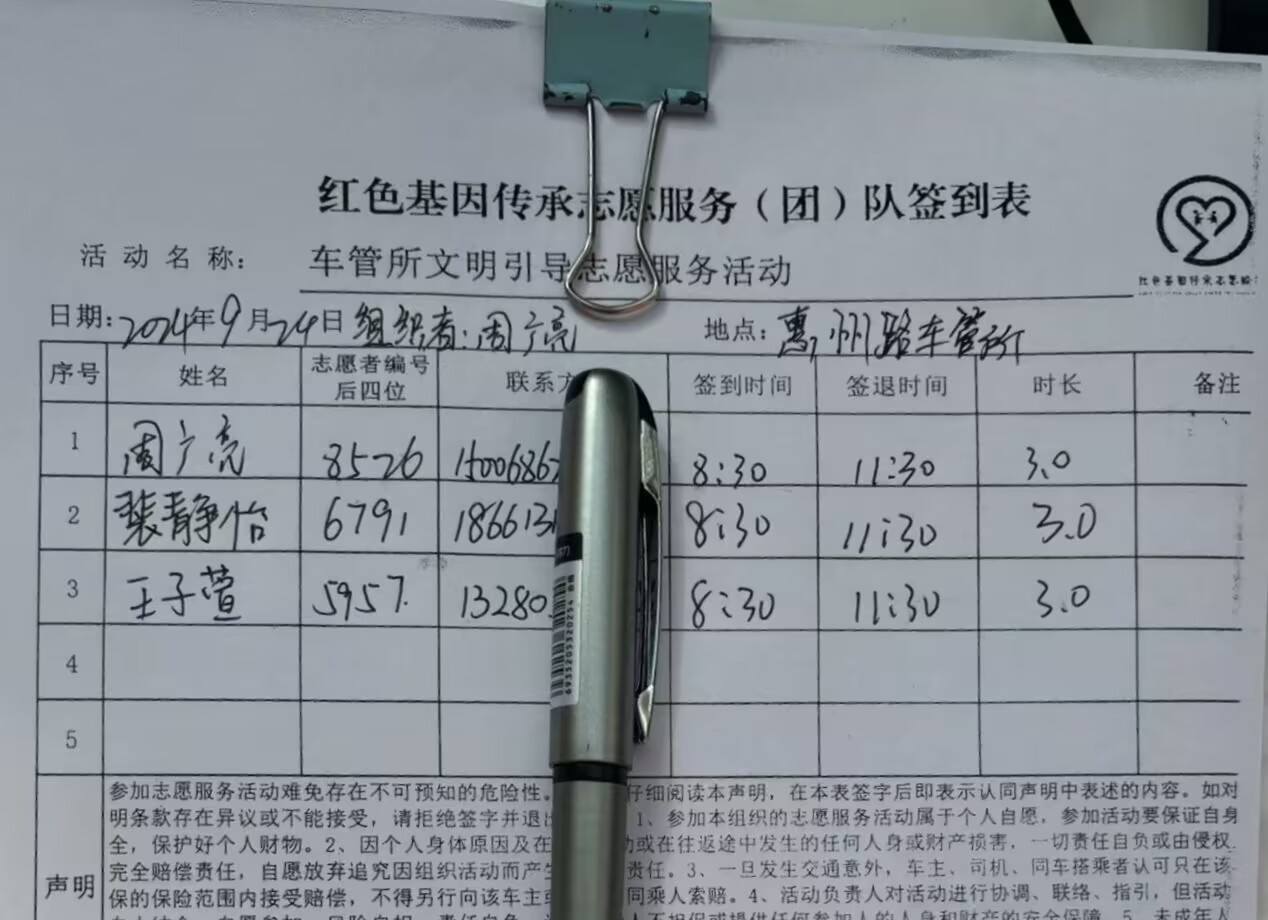 红色基因传承志愿服务（团）队签到表
活动名称： 车管所文明引导志愿服务活动
日期：2024年9月24日 组织者：周广亮 地点：惠州路车管所
序号 姓名 志愿者编号后四位 联系方 签到时间 签退时间 时长 备注
1 周广亮 8526 1500686 8:30 11:30 3.0
2 裴静怡 6791 186613 8:30 11:30 3.0
3 王子萱 5957. 13280 8:30 11:30 3.0
4
5
声明
参加志愿服务活动难免存在不可预知的危险性。 仔细阅读本声明，在本表签字后即表示认同声明中表述的内容。如对
明条款存在异议或不能接受，请拒绝签字并退出 1、参加本组织的志愿服务活动属于个人自愿，参加活动要保证自身
全，保护好个人财物。2、因个人身体原因及在 或在往返途中发生的任何人身或财产损害，一切责任自负或由侵权
完全赔偿责任，自愿放弃追究因组织活动而产生 责任。3、一旦发生交通意外，车主、司机、同车搭乘者认可只在该
保的保险范围内接受赔偿，不得另行向该车主或 同乘人索赔。4、活动负责人对活动进行协调、联络、指引，但活动
6935205320254